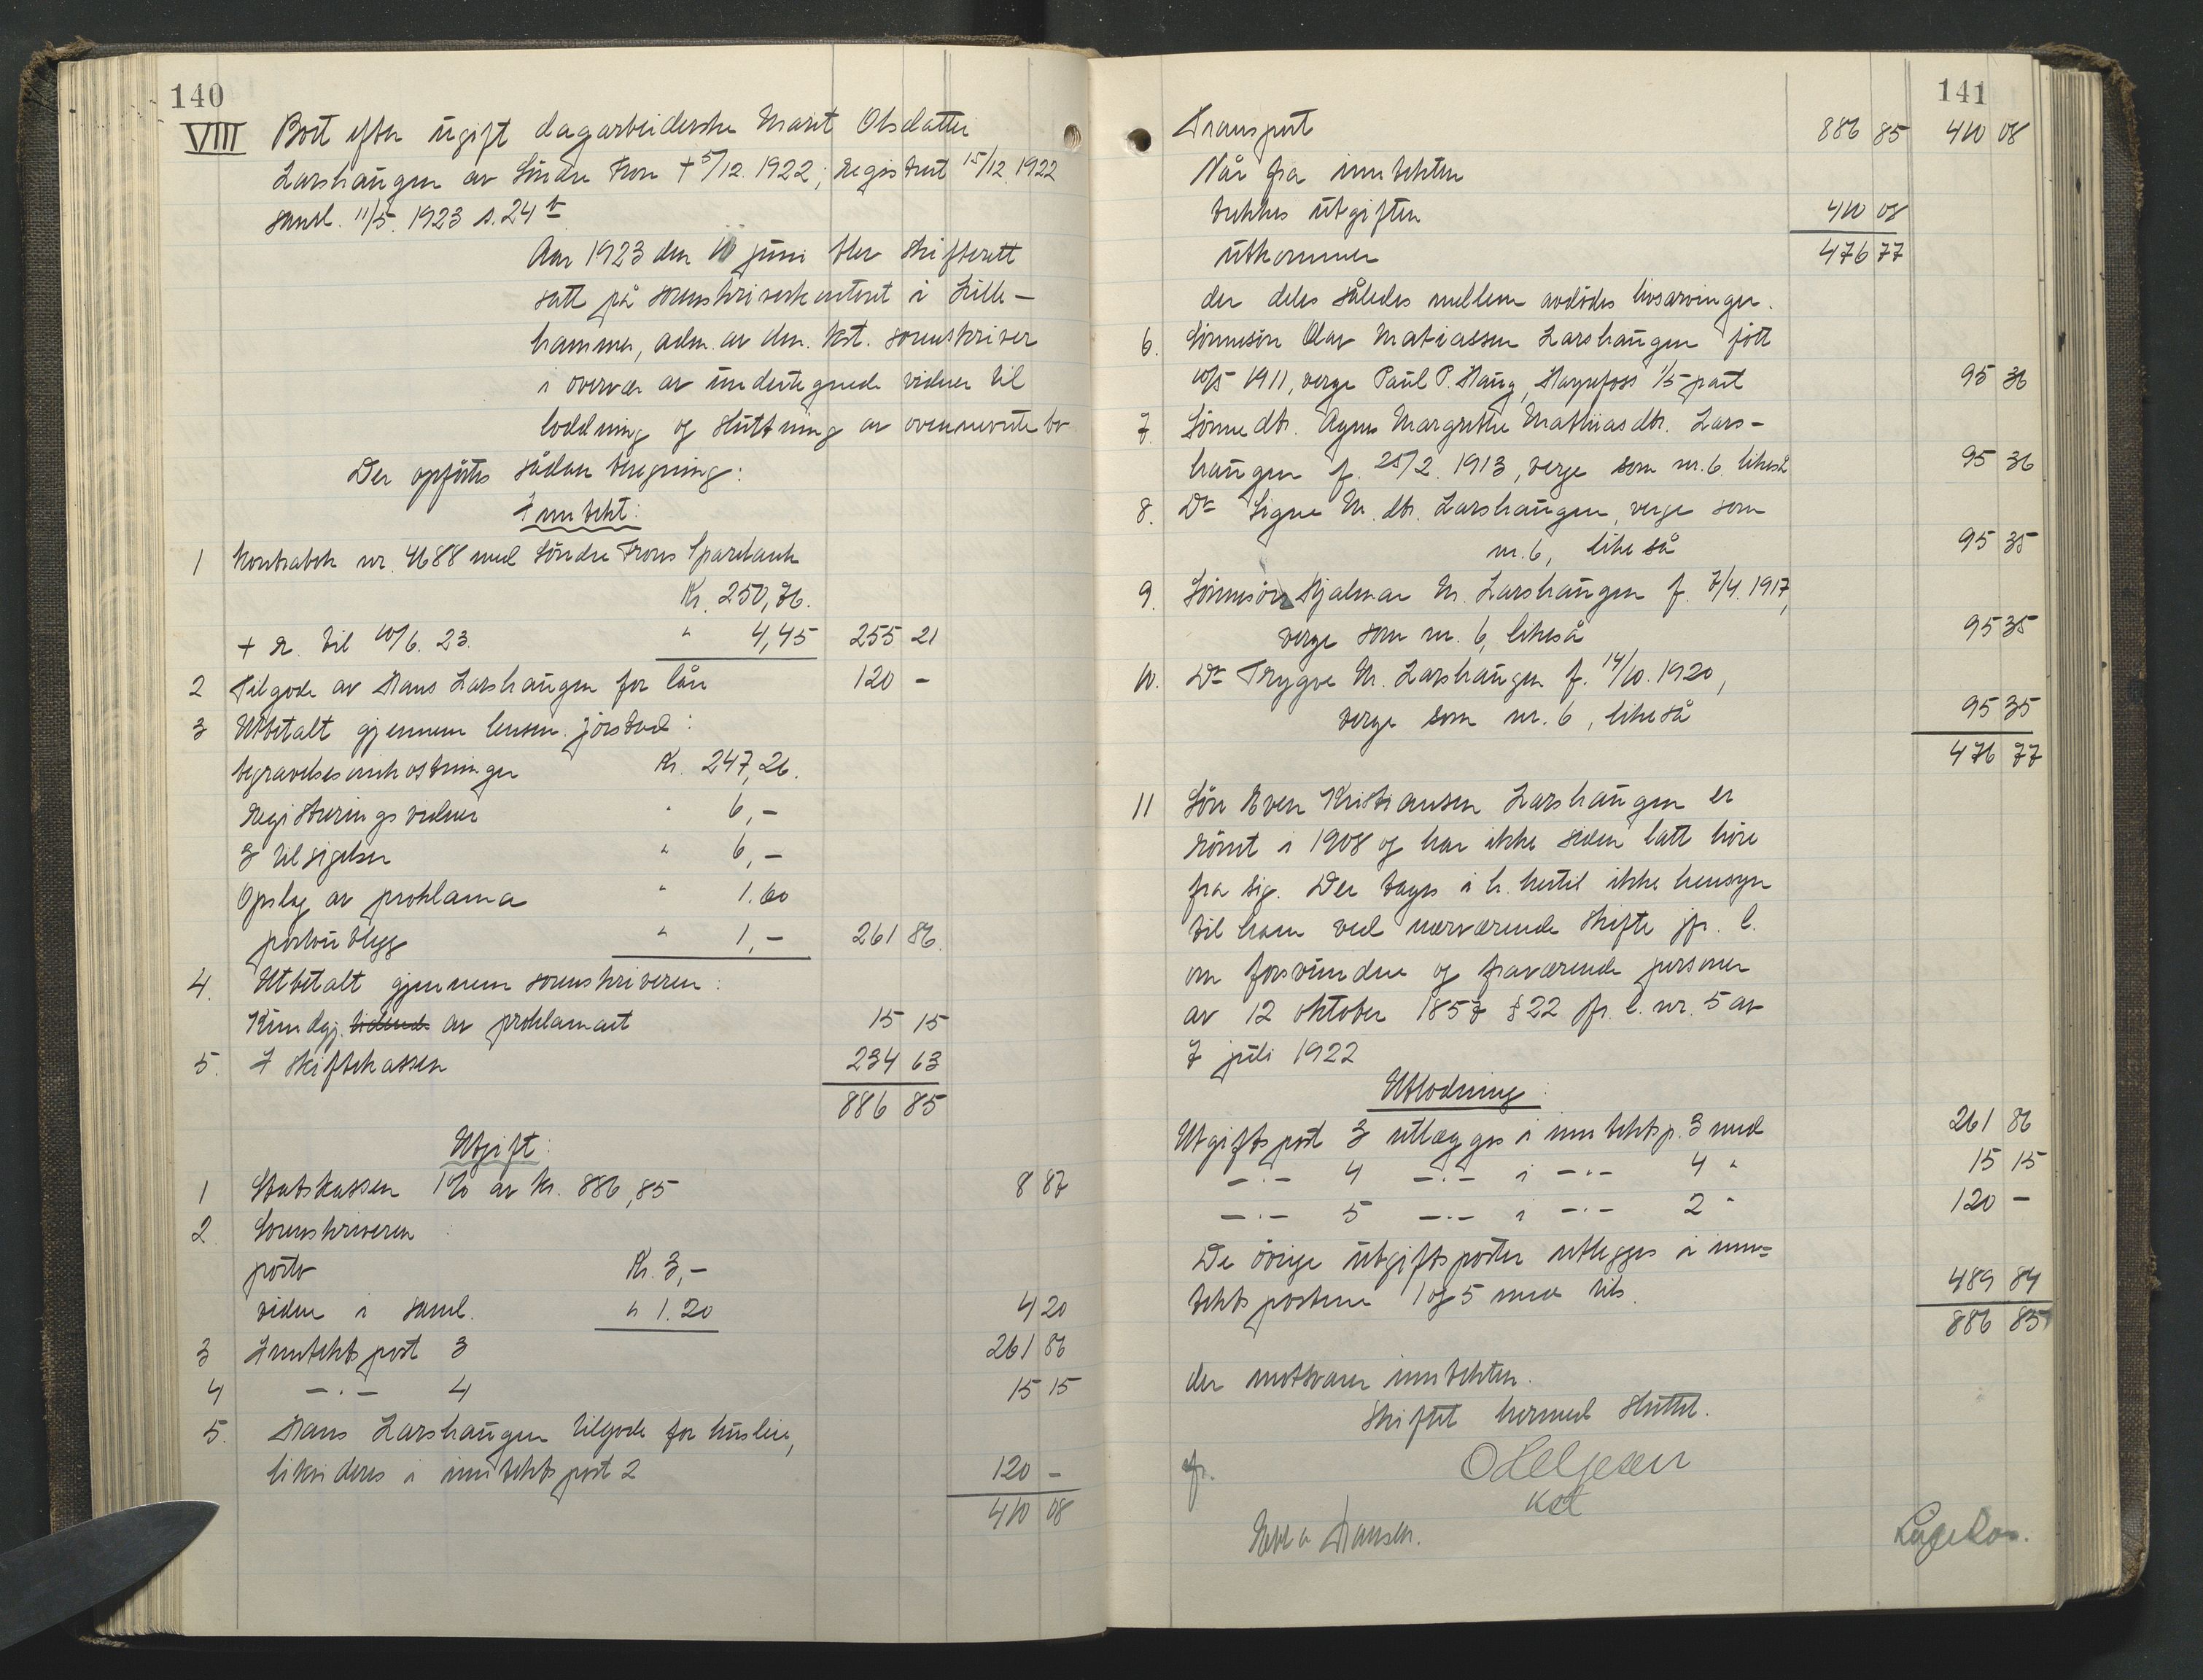 140
VIII Boet efter ugift dagarbeiderske Marit Olsdatter
Larshaugen av Søndre Fron + 5/12. 1922; registrert 15/12. 1922
saml. 11/5. 1923 s. 24 b
Aar 1923 den 10 juni blev skifterett
satt på sorenskriverkontoret i Lille-
hammer, adm. av den kst. sorenskriver
i overvær av undertegnede vidner til
loddning og sluttning av ovennevnte bo
Der opførtes sådan beregning:
Inntekt:
1 Kontrabok nr. 4688 med Søndre Frons Sparebank
Kr. 250,76.
+ r. til 10/6. 23. " 4,45 255 21
2 Tilgode av Hans Larshaugen for lån 120 -
3 Utbetalt gjennem lensm. Jørstad:
begravelsesomkostninger Kr. 247,26.
Registreringsvidner " 6,-
3 tilsigelser " 6,-
Opslag av proklama " 1.60
portoutlegg " 1,- 261 86.
4. Utbetalt gjennem sorenskriveren:
Kundgj. av proklamaet 15 15
5. I skiftekassen 234 63
886 85
Utgift:
1 Statskassen 1% av kr. 886,85 8 87
2 Sorenskriveren:
porto Kr. 3,-
vidne i saml. " 1.20 4 20
3 Inntektspost 3 261 86
4 -.- 4 15 15
5. Hans Larshaugen tilgode for husleie,
likvideres i inntektspost 2 120 -
410 08
141
Transport 886 85 410 08
Når fra inntekten
trekkes utgiften 410 08
utkommer 476 77
der deles således mellem avdødes livsarvinger.
6. Sønnesøn Olav Matiassen Larshaugen født
10/5 1911, verge Paul P. Haug, Harpefoss 1/5 part 95 36
7. Sønnedtr. Agnes Margrethe Mathiasdtr. Lars-
haugen f. 25/2. 1913, verge som nr. 6 likeså 95 36
8. Do Signe M. dtr. Larshaugen, verge som
nr. 6, likeså 95 35
9. Sønnesøn Hjalmar M. Larshaugen f. 7/4. 1917,
verge som nr. 6, likeså 95 35
10. Do Trygve M. Larshaugen f. 14/10. 1920,
verge som nr. 6, likeså 95 35
476 77
11 Søn Even Kristiansen Larshaugen er
rømt i 1908 og har ikke siden latt høre
fra sig. Der tages i h. hertil ikke hensyn
til ham ved nærværende skifte jfr. l.
om forsvundne og fraværende personer
av 12 oktober 1857 § 22 jfr. l. nr. 5 av
7 juli 1922
Utlodning:
Utgiftspost 3 utlægges i inntektsp. 3 med 261 86
-.- 4 -.- i -.- 4 " 15 15
-.- 5 -.- i -.- 2 " 120 -
De øvrige utgiftsposter utlegges i inn=
tektspostene 1 og 5 med tils. 489 84
886 85
der motsvarer inntekten.
Skiftet hermed sluttet.
O Helgesen
kst
Hansen.